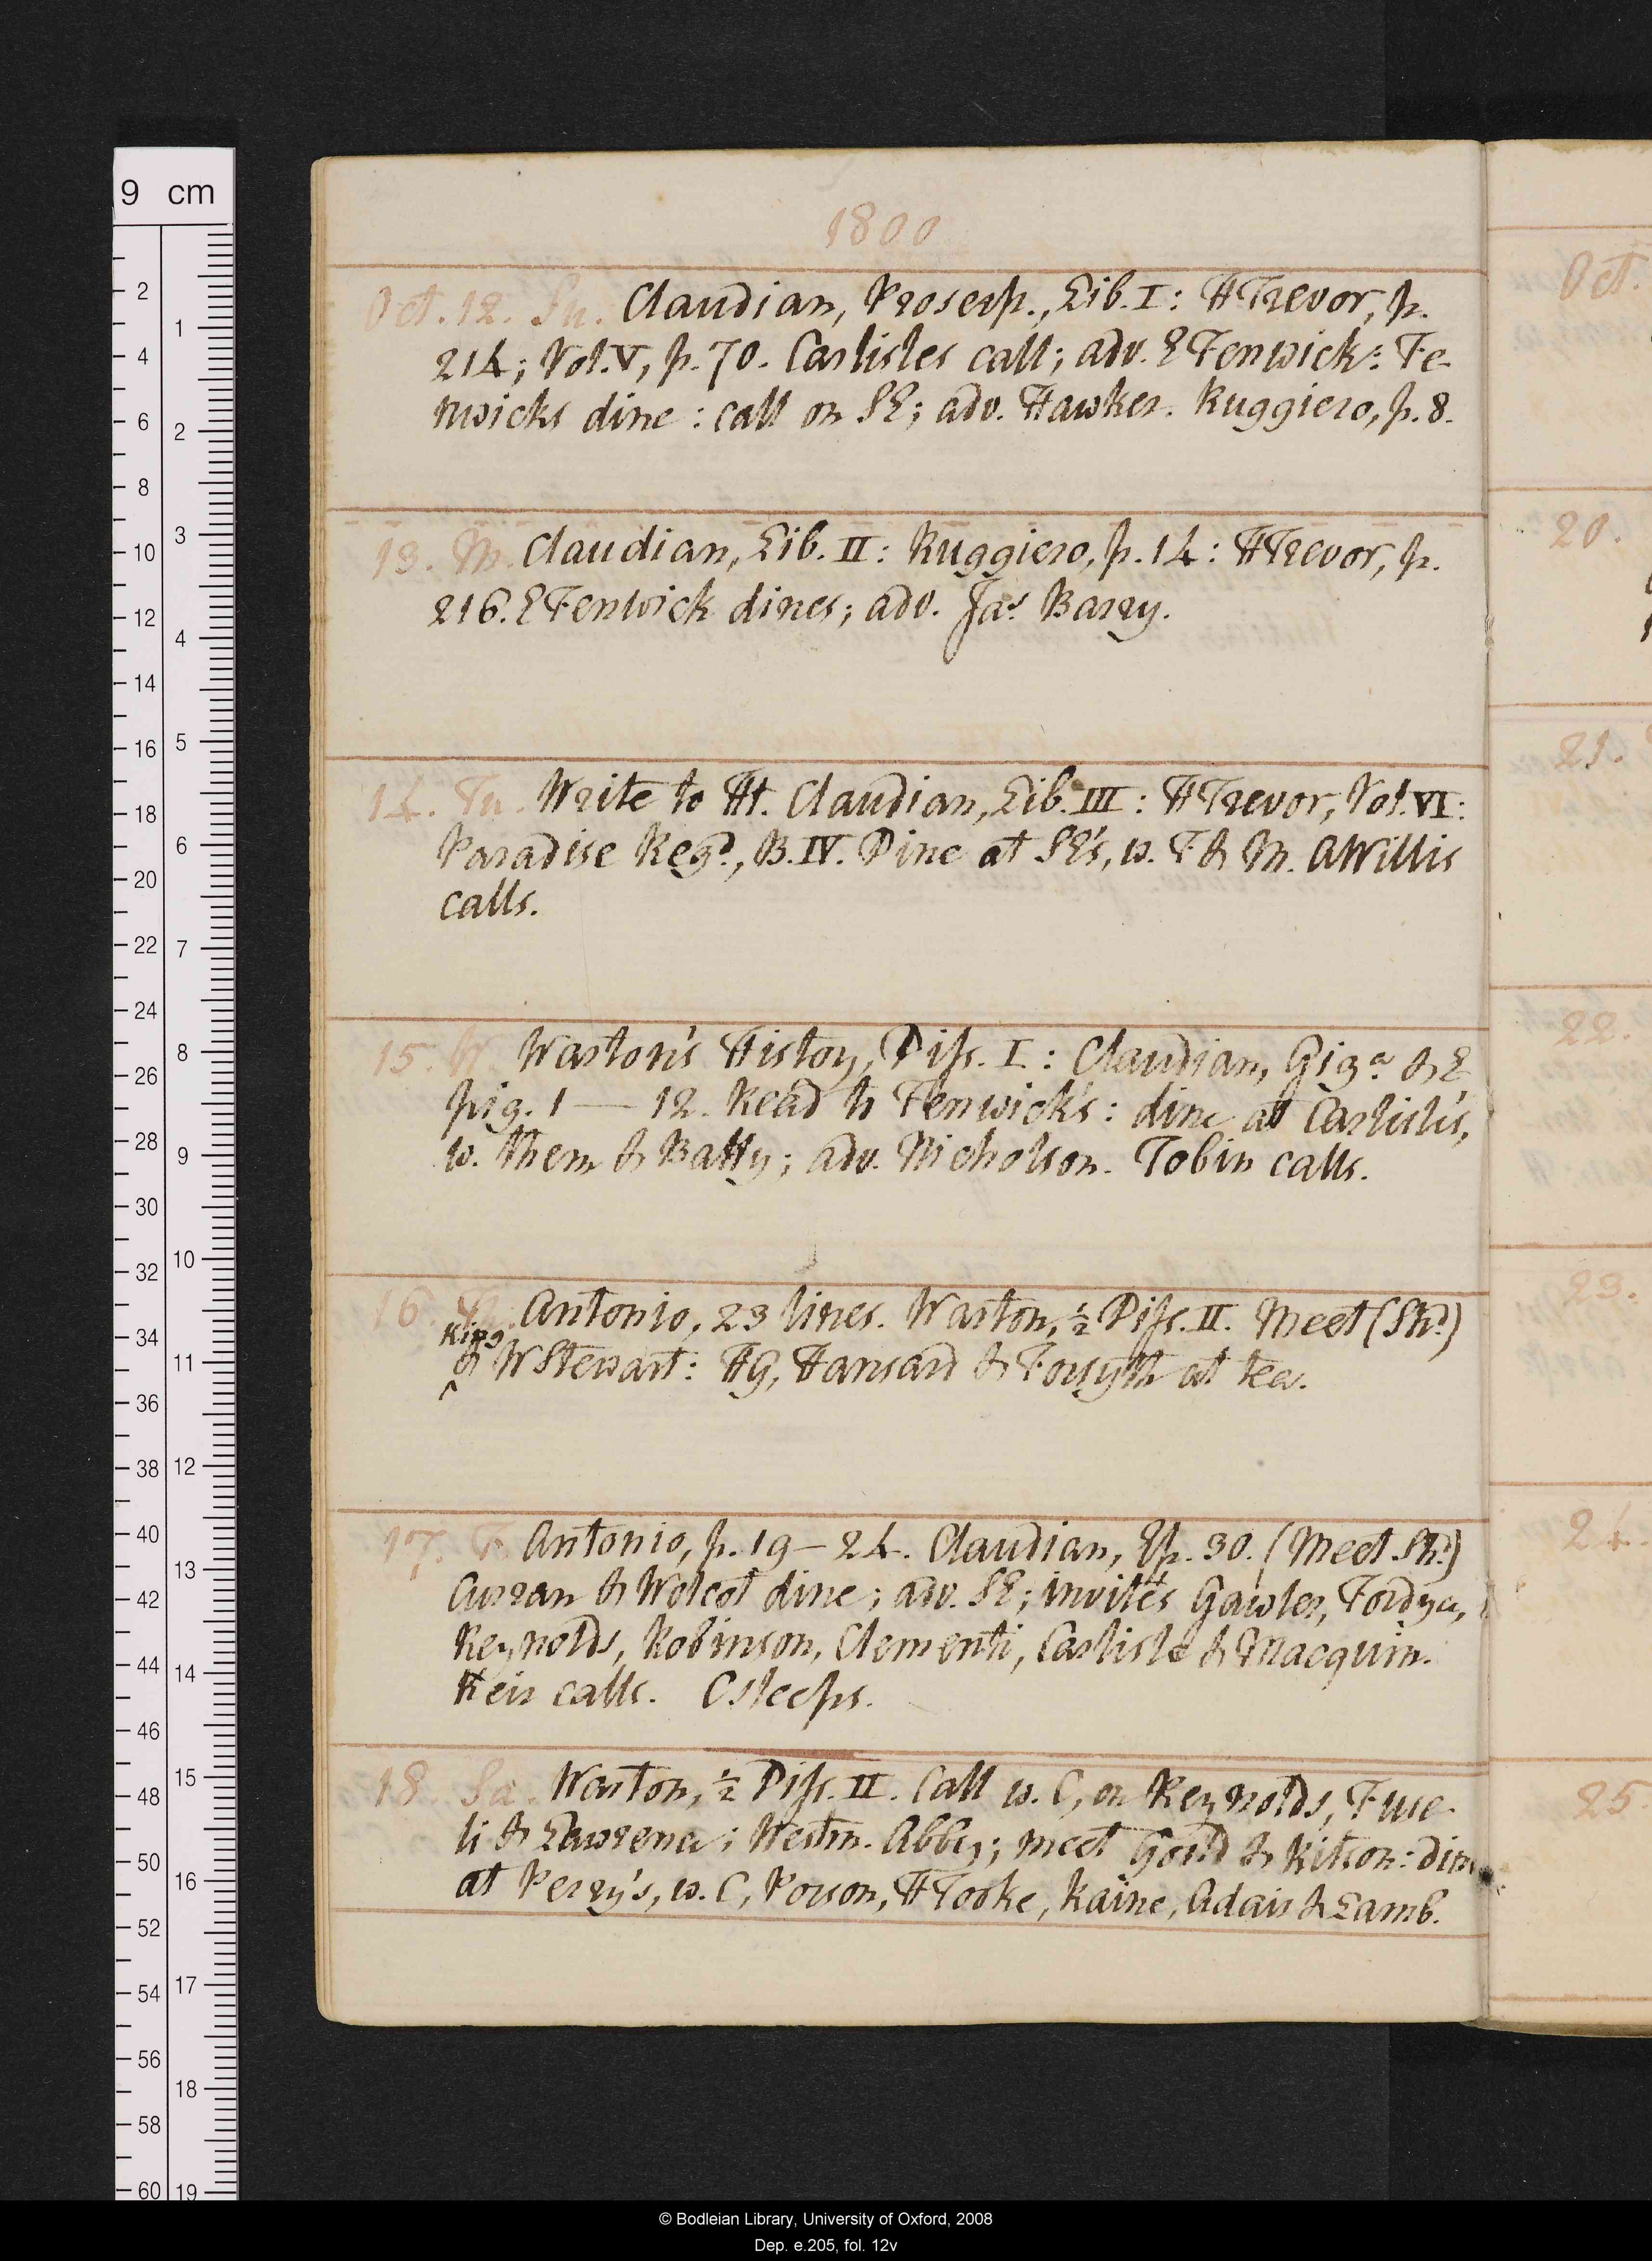 1800
Oct. 12. Su. Claudian, Proserp., Lib. I: H Trevor, p.
214; Vol. V, p. 70. Carlisles call; adv. E Fenwick: Fe-
nwicks dine: call on SE; adv. Hawker. Ruggiero, p. 8.
13. M. Claudian, Lib. II: Ruggiero, p. 14: H Trevor, p.
216. E Fenwick dines; adv. Jas Barry.
14. Tu. Write to Ht. Claudian, Lib. III: H Trevor, Vol. VI:
Paradise Regd, B. IV. Dine at SE's, w. F & M. A Willis
calls.
15. W. Warton's History, Diss. I: Claudian, Giga & E
pig. 1 — 12. Read to Fenwick's: dine at Carlisle's,
w. them & Batty; adv. Nicholson. Tobin calls.
16. Th. Antonio, 23 lines. Warton, ½ Diss. II. Meet (Shd)
King
& W Stewart: HG, Hansard & Forsyth at tea.
17. F. Antonio, p. 19 — 24. Claudian, Ep. 30. (Meet Shd)
Curran & Wolcot dine; adv. SE; invités Gawler, Fordyce,
Reynolds, Robinson, Clementi, Carlisle & Macquin.
Keir calls. C sleeps.
18. Sa. Warton, ½ Diss. II. Call w. C, on Reynolds, Fuse-
li & Lawrence; Westm. Abbey; meet Gould & Kitson: dine
at Perry's, w. C, Porson, H Tooke, Raine, Adair & Lamb.
Oct.
20.
21.
22.
23.
24.
25
9 cm
2
4
6
8
10
12
14
16
18
20
22
24
26
28
30
32
34
36
38
40
42
44
46
48
50
52
54
56
58
60
1
2
3
4
5
6
7
8
9
10
11
12
13
14
15
16
17
18
19
© Bodleian Library, University of Oxford, 2008
Dep. e.205, fol. 12v